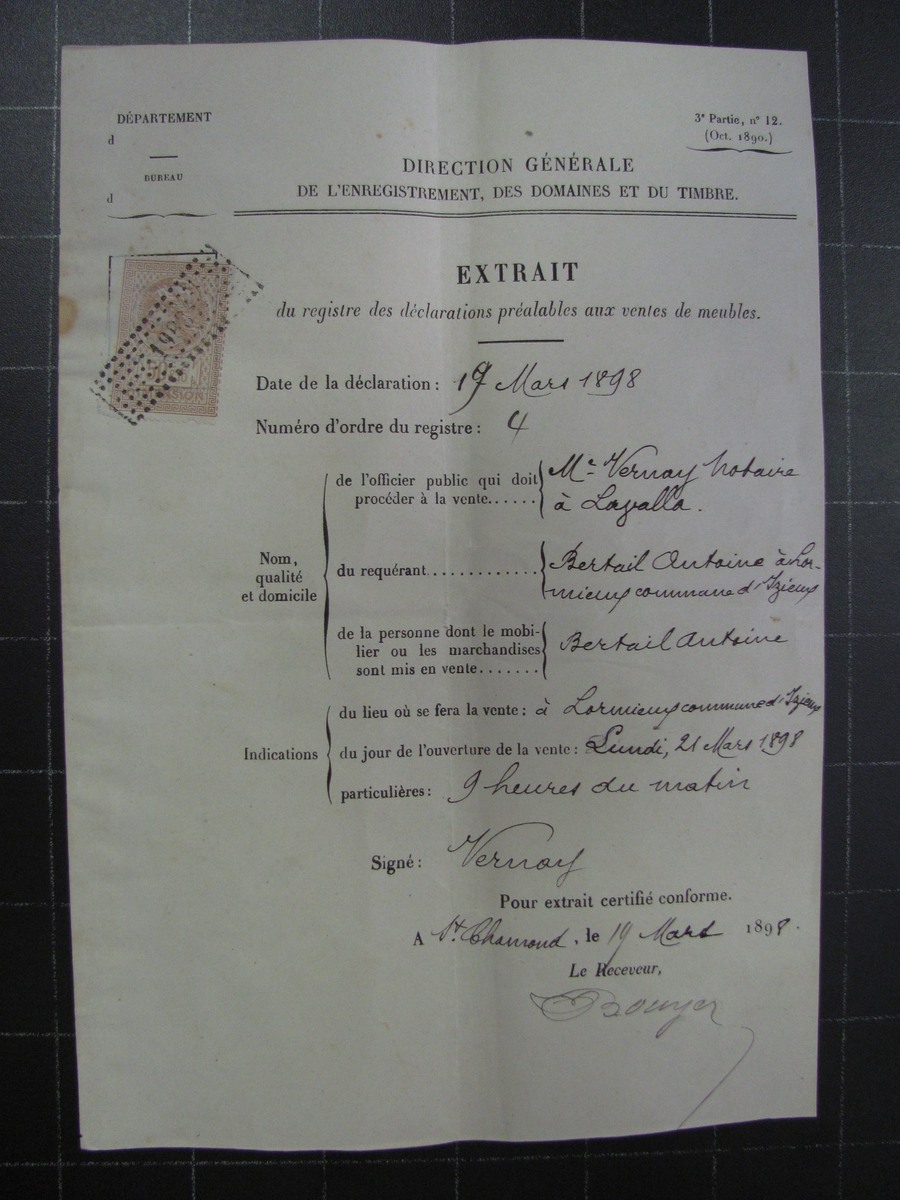 DÉPARTEMENT
d
BUREAU
d
3e Partie, n° 12.
(Oct. 1890.)
DIRECTION GÉNÉRALE
DE L'ENREGISTREMENT, DES DOMAINES ET DU TIMBRE.
EXTRAIT
du registre des déclarations préalables aux ventes de meubles.
Date de la déclaration : 19 Mars 1898
Numéro d'ordre du registre : 4
Nom,
qualité
et domicile
de l'officier public qui doit
procéder à la vente......
Me Vernay Notaire
à Lavalla.
du requérant.............
Bertail Antoine à Lor-
mieux commune d'Izieux
de la personne dont le mobi-
lier ou les marchandises
sont mis en vente.......
Bertail Antoine
Indications
particulières :
du lieu où se fera la vente : à Lormieux commune d'Izieux
du jour de l'ouverture de la vente : Lundi, 21 Mars 1898
9 heures du matin
Signé : Vernay
Pour extrait certifié conforme.
A St. Chamond, le 19 Mars 1898.
Le Receveur,